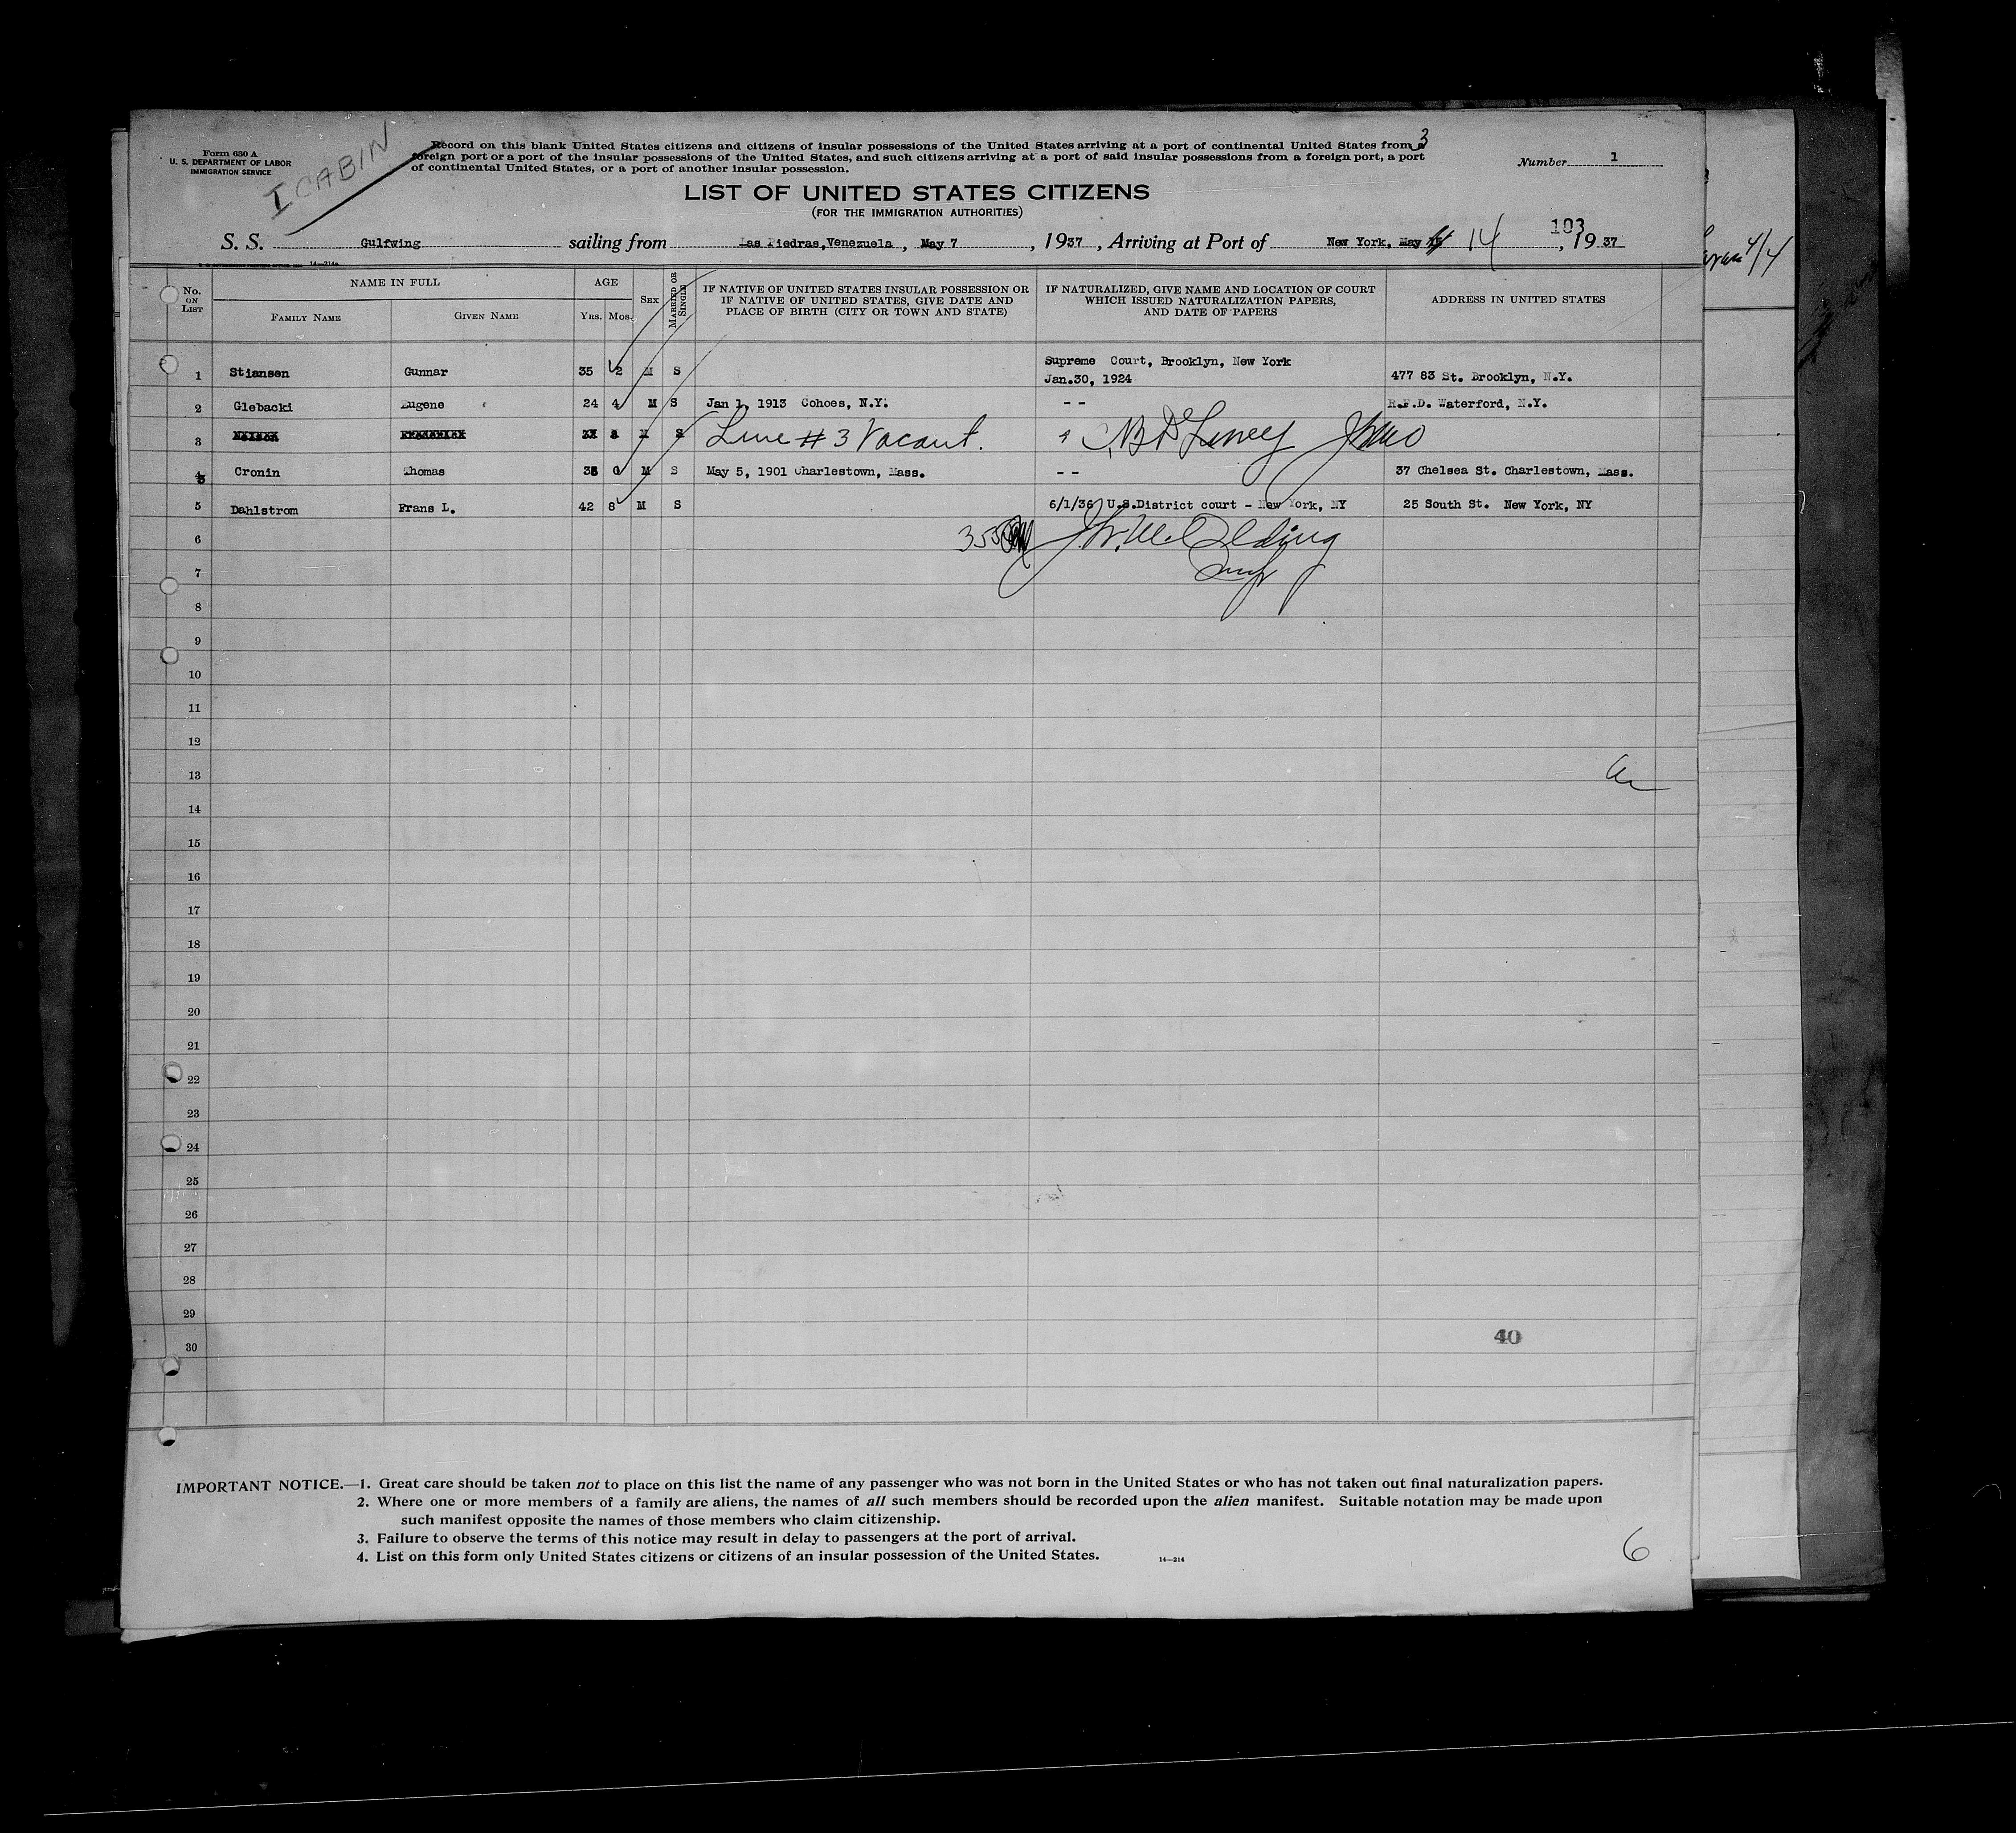 Form 630 A
U. S. DEPARTMENT OF LABOR
IMMIGRATION SERVICE
I CABIN
Record on this blank United States citizens and citizens of insular possessions of the United States arriving at a port of continental United States from a
foreign port or a port of the insular possessions of the United States, and such citizens arriving at a port of said insular possessions from a foreign port, a port
of continental United States, or a port of another insular possession.
3
Number 1
LIST OF UNITED STATES CITIZENS
(FOR THE IMMIGRATION AUTHORITIES)
103
S. S. Gulfwing sailing from Las Piedras, Venezuela , May 7 , 1937 , Arriving at Port of New York, May 14 , 1937
No. ON LIST
NAME IN FULL
FAMILY NAME
GIVEN NAME
AGE
YRS. MOS.
SEX
MARRIED OR SINGLE
IF NATIVE OF UNITED STATES INSULAR POSSESSION OR
IF NATIVE OF UNITED STATES, GIVE DATE AND
PLACE OF BIRTH (CITY OR TOWN AND STATE)
IF NATURALIZED, GIVE NAME AND LOCATION OF COURT
WHICH ISSUED NATURALIZATION PAPERS,
AND DATE OF PAPERS
ADDRESS IN UNITED STATES
1 Stiansen Gunnar 35 2 M S Supreme Court, Brooklyn, New York
Jan.30, 1924 477 83 St. Brooklyn, N.Y.
2 Glebacki Eugene 24 4 M S Jan 1, 1913 Cohoes, N.Y. -- R.F.D. Waterford, N.Y.
3 Line # 3 Vacant.
4 Cronin Thomas 36 0 M S May 5, 1901 Charlestown, Mass. -- 37 Chelsea St. Charlestown, Mass.
5 Dahlstrom Frans L. 42 8 M S 6/1/36 U.S.District court - New York, NY 25 South St. New York, NY
6
7
8
9
10
11
12
13
14
15
16
17
18
19
20
21
22
23
24
25
26
27
28
29
30
40
IMPORTANT NOTICE.—1. Great care should be taken not to place on this list the name of any passenger who was not born in the United States or who has not taken out final naturalization papers.
2. Where one or more members of a family are aliens, the names of all such members should be recorded upon the alien manifest. Suitable notation may be made upon
such manifest opposite the names of those members who claim citizenship.
3. Failure to observe the terms of this notice may result in delay to passengers at the port of arrival.
4. List on this form only United States citizens or citizens of an insular possession of the United States.
14—214
6